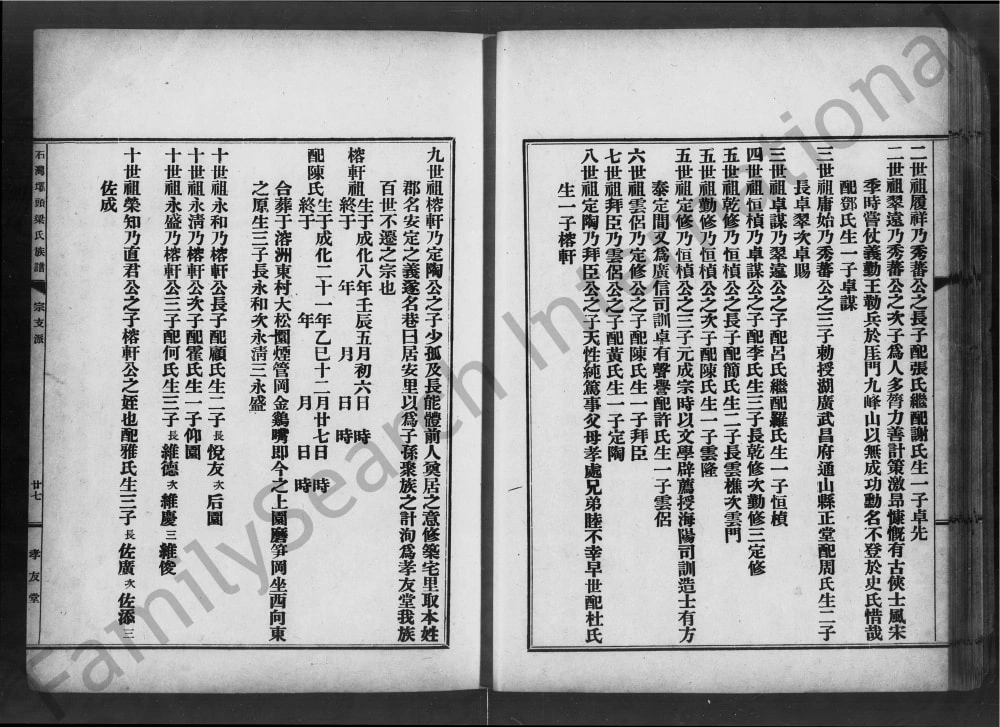 二世祖履祥乃秀蕃公之長子配張氏繼配謝氏生一子卓先
二世祖翠遠乃秀蕃公之次子為人多膂力善計策激昂慷慨有古俠士風宋
季時嘗仗義勤王勒兵於厓門九峰山以無成功動名不登於史氏惜哉
配鄧氏生一子卓謀
三世祖庸始乃秀蕃公之三子勅授湖廣武昌府通山縣正堂配周氏生二子
長卓翠次卓賜
三世祖卓謀乃翠遠公之子配呂氏繼配羅氏生一子恒楨
四世祖恒楨乃卓謀公之子配李氏生三子長乾修次勤修三定修
五世祖乾修乃恒楨公之長子配簡氏生二子長雲樵次雲門
五世祖勤修乃恒楨公之次子配陳氏生一子雲隆
五世祖定修乃恒楨公之三子元成宗時以文學辟薦授海陽司訓造士有方
泰定間又為廣信司訓卓有聲譽配許氏生一子雲侶
六世祖雲侶乃定修公之子配陳氏生一子拜臣
七世祖拜臣乃雲侶公之子配黃氏生一子定陶
八世祖定陶乃拜臣公之子天性純篤事父母孝處兄弟睦不幸早世配杜氏
生一子榕軒
九世祖榕軒乃定陶公之子少孤及長能體前人奠居之意修築宅里取本姓
郡名安定之義遂名巷曰居安里以為子孫聚族之計洵為孝友堂我族
百世不遷之宗也
榕軒祖生于成化八年壬辰五月初六日 時
終于 年 月 日 時
配陳氏生于成化二十一年乙巳十二月廿七日 時
終于 年 月 日 時
合葬于溶洲東村大松園煙管岡金鷄嘴即今之上園磨笋岡坐西向東
之原生三子長永和次永清三永盛
十世祖永和乃榕軒公長子配顧氏生二子長悅友次后園
十世祖永清乃榕軒公次子配霍氏生一子仰園
十世祖永盛乃榕軒公三子配何氏生三子長維德次維慶三維俊
十世祖榮知乃直君公之子榕軒公之姪也配雅氏生三子長佐廣次佐添三
佐成
石灣塱頭梁氏族譜
宗支派
廿七
孝友堂
FamilySearch International